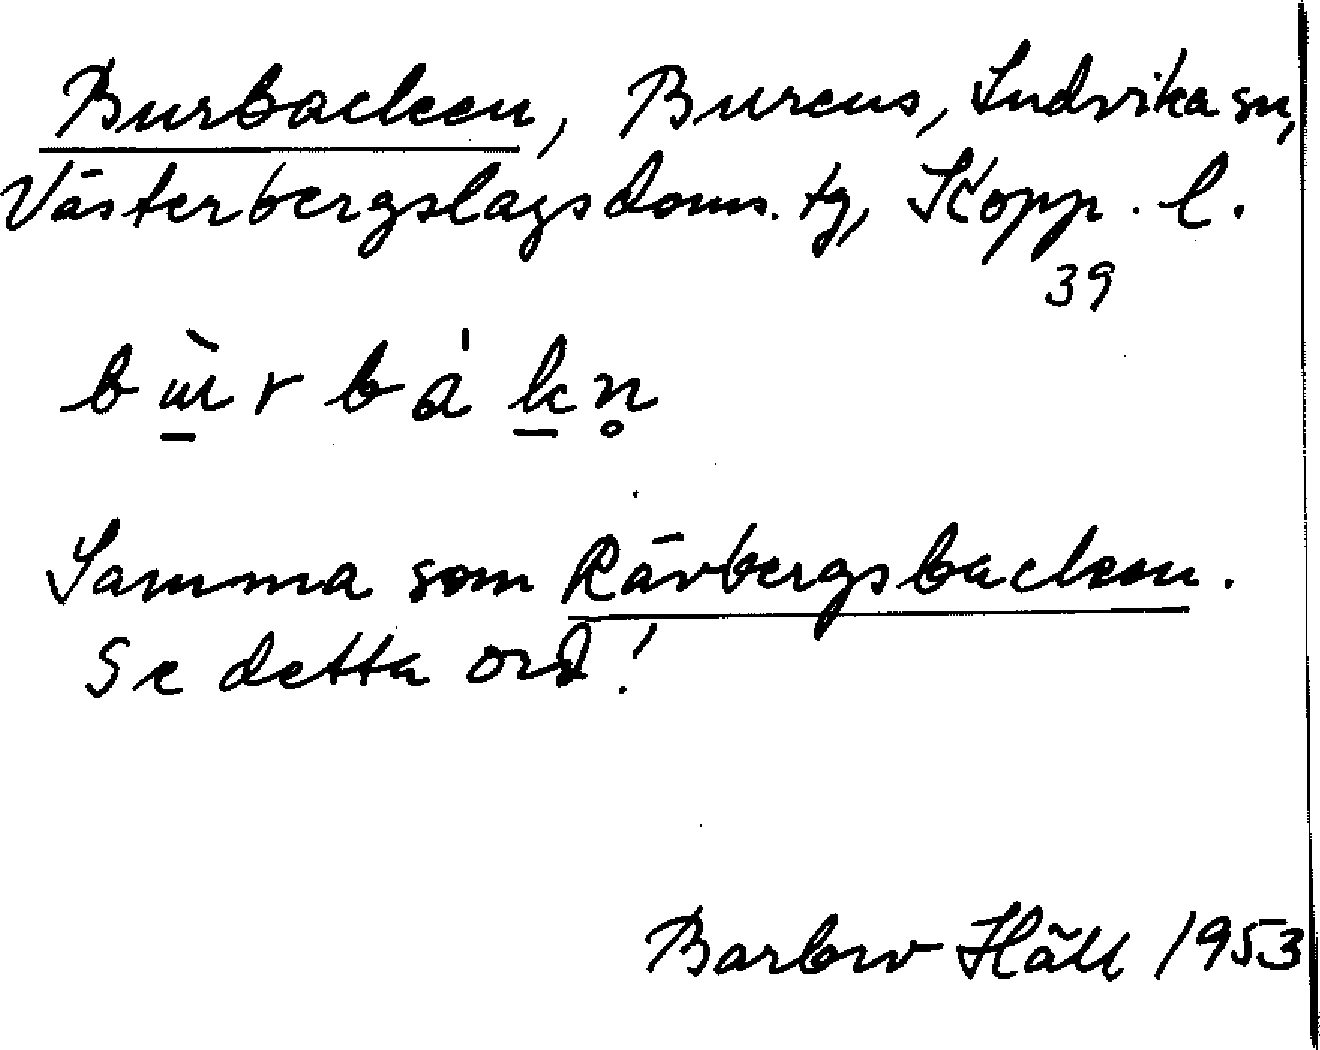 Burbacken, Burens, Ludvika sn,
Västerbergslags doms. tg, Kopp. l.
39
Samma som Rävbergsbacken.
Se detta ord!
Häll 1953